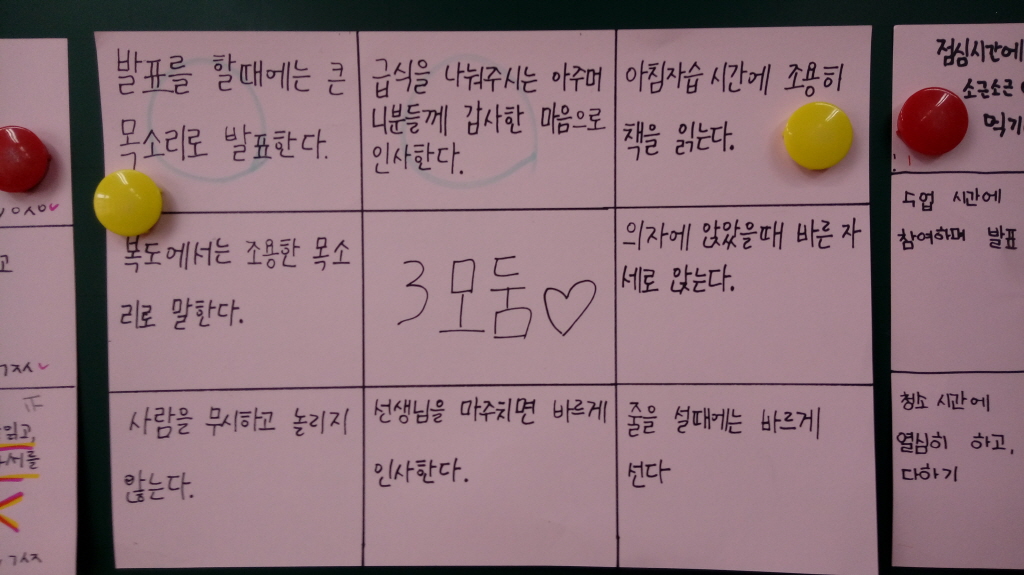 발표를 할때에는 큰
목소리로 발표한다.
급식을 나눠주시는 아주머
니분들께 감사한 마음으로
인사한다.
아침자습 시간에 조용히
책을 읽는다.
복도에서는 조용한 목소
리로 말한다.
3모둠♡
의자에 앉았을때 바른 자
세로 앉는다.
사람을 무시하고 놀리지
않는다.
선생님을 마주치면 바르게
인사한다.
줄을 설때에는 바르게
선다
점심시간에
소근소근
먹기
수업 시간에
참여하며 발표
청소 시간에
열심히 하고,
다하기
고